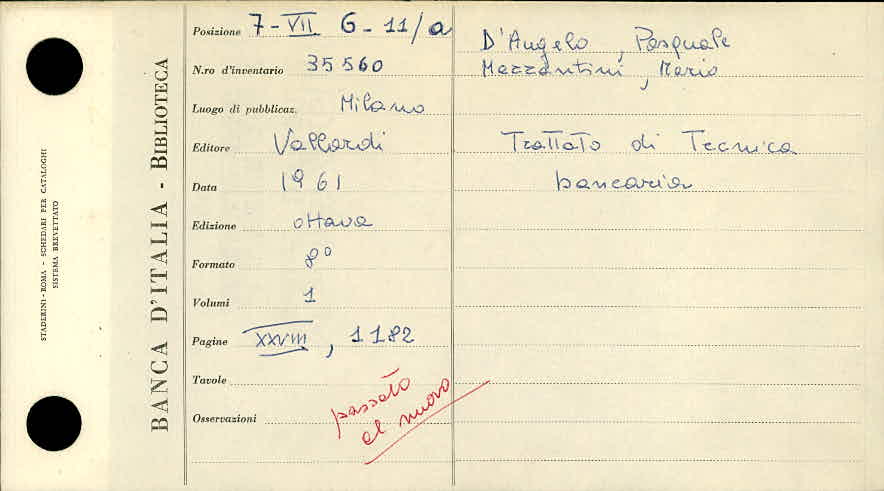 STADERINI - ROMA - SCHEDARI PER CATALOGHI
SISTEMA BREVETTATO
BANCA D'ITALIA - BIBLIOTECA
Posizione 7-VII G-11/a
N.ro d'inventario 35560
Luogo di pubblicaz. Milano
Editore Vallardi
Data 1961
Edizione ottava
Formato 8°
Volumi 1
Pagine XXVIII, 1182
Tavole
Osservazioni
passato
al nuovo
D'Angelo, Pasquale
Mazzantini, Mario
Trattato di Tecnica
bancaria